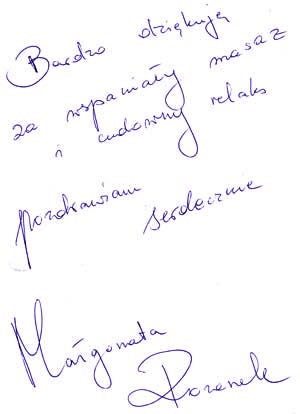 Bardzo dziękuję
za wspaniały masaż
i cudowny relaks
pozdrawiam serdecznie
Małgorzata
Rozenek